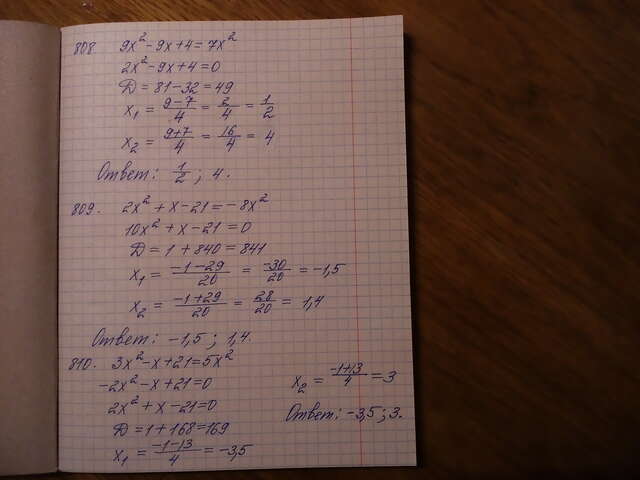 808. 9x² - 9x + 4 = 7x²
2x² - 9x + 4 = 0
D = 81 - 32 = 49
x₁ = (9-7)/4 = 2/4 = 1/2
x₂ = (9+7)/4 = 16/4 = 4
Ответ: 1/2 ; 4.
809. 2x² + x - 21 = -8x²
10x² + x - 21 = 0
D = 1 + 840 = 841
x₁ = (-1-29)/20 = -30/20 = -1,5
x₂ = (-1+29)/20 = 28/20 = 1,4
Ответ: -1,5 ; 1,4.
810. 3x² - x + 21 = 5x²
-2x² - x + 21 = 0
2x² + x - 21 = 0
D = 1 + 168 = 169
x₁ = (-1-13)/4 = -3,5
x₂ = (-1+13)/4 = 3
Ответ: -3,5 ; 3.